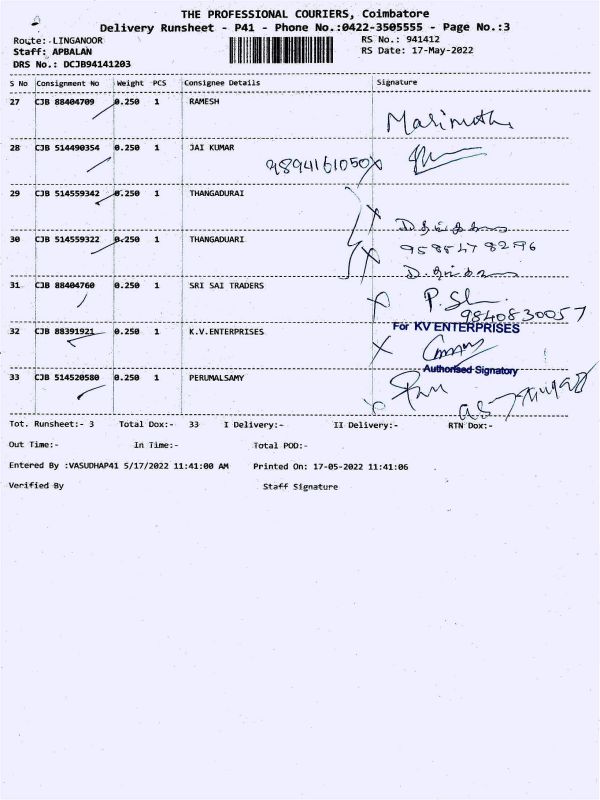 THE PROFESSIONAL COURIERS, Coimbatore
Delivery Runsheet - P41 - Phone No.:0422-3505555 - Page No.:3
Route:-LINGANOOR RS No.: 941412
Staff: APBALAN RS Date: 17-May-2022
DRS No.: DCJB94141203
S No Consignment No Weight PCS Consignee Details Signature
27 CJB 88404709 0.250 1 RAMESH
Marimuthu
28 CJB 514490354 0.250 1 JAI KUMAR
9894161050
29 CJB 514559342 0.250 1 THANGADURAI
30 CJB 514559322 0.250 1 THANGADUARI
9585478296
31 CJB 88404760 0.250 1 SRI SAI TRADERS
9840830057
32 CJB 88391921 0.250 1 K.V.ENTERPRISES
For KV ENTERPRISES
Authorised Signatory
33 CJB 514520580 0.250 1 PERUMALSAMY
Tot. Runsheet:- 3 Total Dox:- 33 I Delivery:- II Delivery:- RTN Dox:-
Out Time:- In Time:- Total POD:-
Entered By :VASUDHAP41 5/17/2022 11:41:00 AM Printed On: 17-05-2022 11:41:06
Verified By Staff Signature